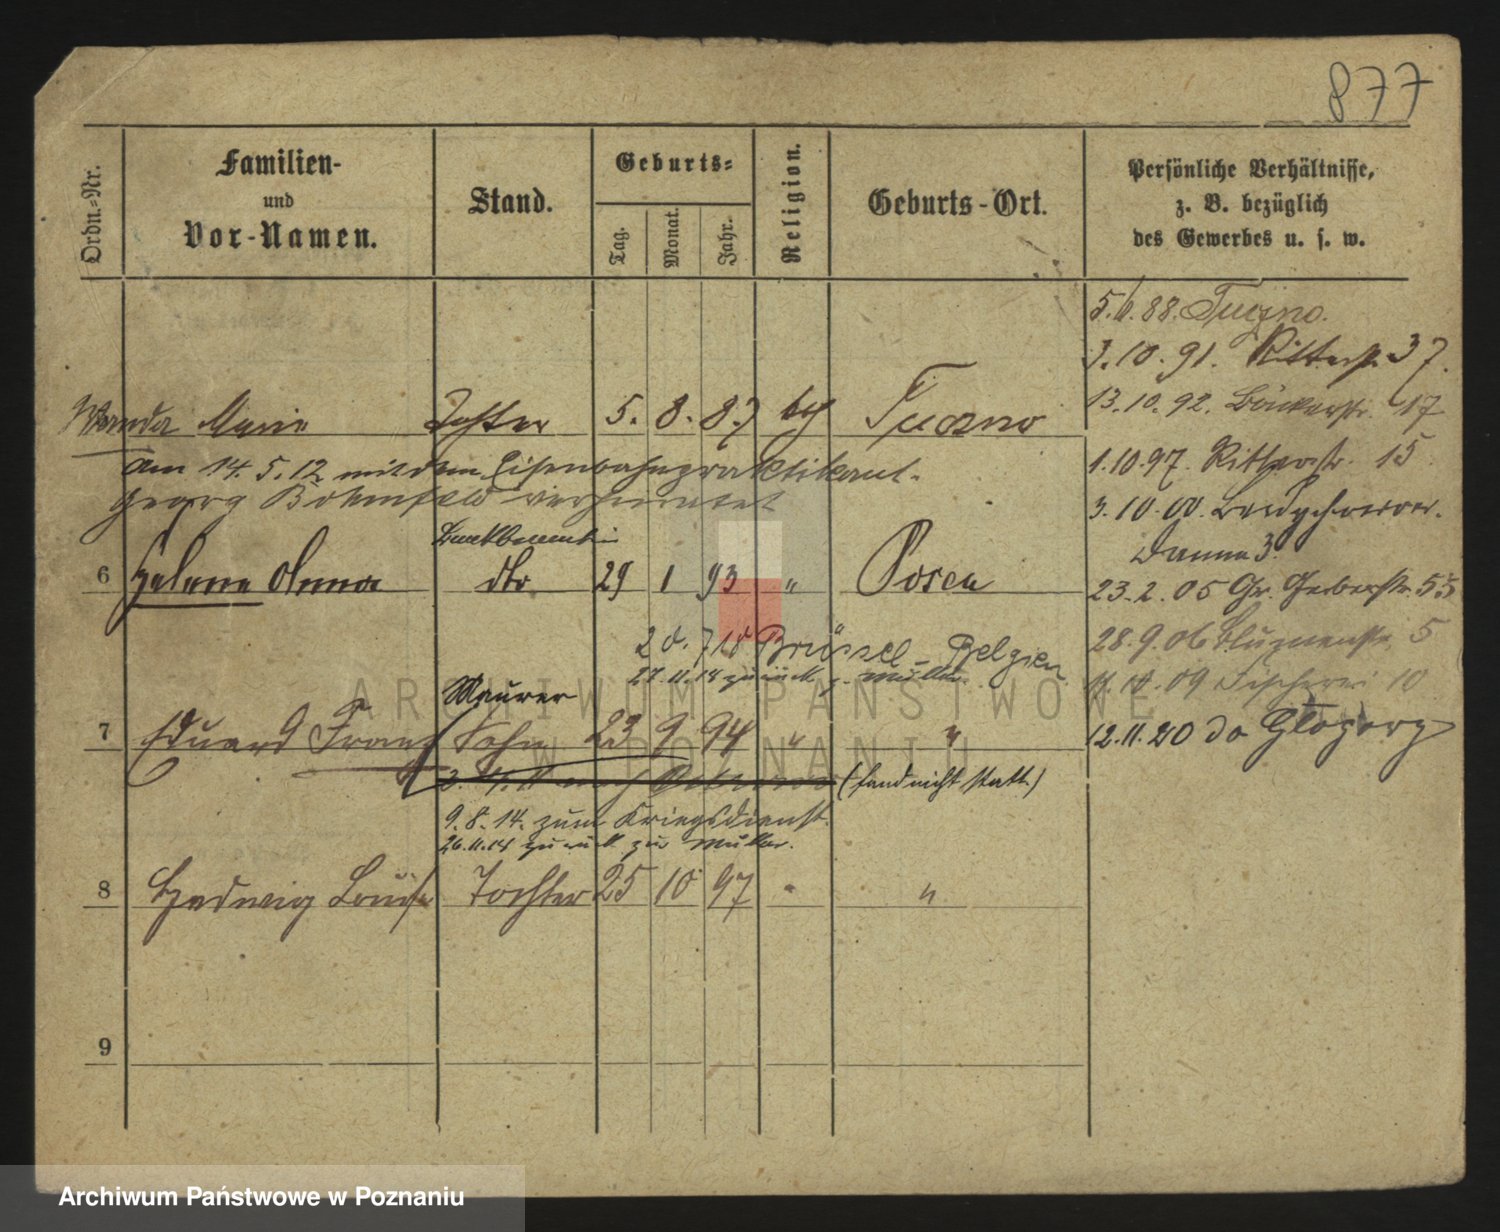 877
Ordn.-Nr.
Familien- und Vor-Namen.
Stand.
Geburts=
Tag.
Monat.
Jahr.
Religion.
Geburts-Ort.
Persönliche Verhältnisse,
z. B. bezüglich
des Gewerbes u. s. w.
5. 88. Tuczno.
3.10.91. Ritterstr. 37.
Wanda Marie Tochter 5. 8. 87 Tuczno
13.10.92. Bäckerstr. 17
am 14.5.12 mit dem Eisenbahnpraktikant.
Georg Bohmfeld verheiratet
1.10.97. Ritterstr. 15
3.10.00.
Damm 3.
6 Helene Anna dto 29 1 93 " Posen
23.2.05 Gr. Gerberstr. 55
20.7.18 Brüssel – Belgien
27.11.18 zurück z. Mutter.
28.9.06 Blumenstr. 5
09 Fischerei 10
Maurer
7 Eduard Franz Sohn 23 9 94 " "
12.11.20 do
(fand nicht statt)
9.8.14. zum Kriegsdienst.
26.11.18 zurück zur Mutter.
8 Hedwig Louise Tochter 25 10 97 " "
9
ARCHIWUM PAŃSTWOWE
W POZNANIU
Archiwum Państwowe w Poznaniu